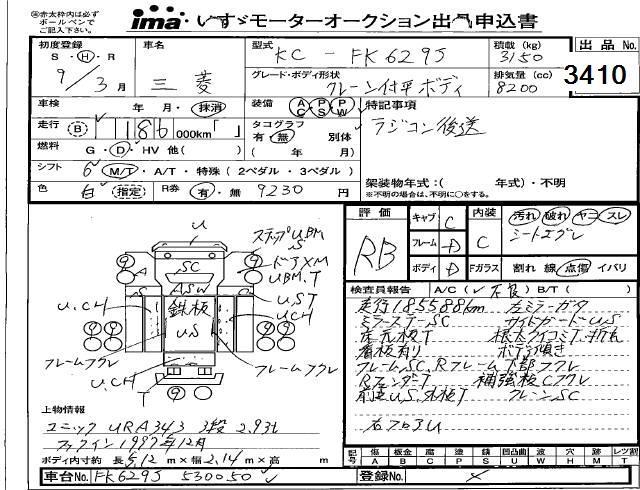 ㊟赤太枠内は必ず
ボールペンで
ご記入下さい。
ima いすゞモーターオークション出品申込書
初度登録
S・H・R
9/3月
車名
三菱
型式
KC-FK629J
グレード・ボディ形状
クレーン付平ボディ
積載 (kg)
3150
排気量 (cc)
8200
出品No.
3410
車検 年 月・抹消
装備 AC PS PW
特記事項
ラジコン後送
走行 B 186 000km「 」
タコグラフ
有・無 別体
( 年 月)
燃料 G・D・HV 他( )
シフト 6 M/T・A/T・特殊(2ペダル・3ペダル)
色 白 指定 R券 有・無 9230円
架装物年式:( 年式)・不明
※不明の場合は、不明に○をする。
評価
RB
キャブ C
フレーム D
ボディ D
内装 C
汚れ 破れ ヤコ スレ
シートエグレ
Fガラス 割れ 線 点傷 イバリ
検査員報告 A/C(✓不良) B/T( )
走行185588km 左ミラーガタ
ミラーステーSC サイドガードーUS
床元板T 根太クイコミT.折れ
看板有り ボディ傾き
フレームSC、Rフレーム下部フクレ
RフェンダーT 補強板Cフクレ
クレーンSC
右フロアU
U
ステップUBM
S
ドアXM
UBM.T
U.ST
UCH
SC
ASW
鉄板
US
A
S
U.CH
フレームフクレ
フレームフクレ
UCH
T
上物情報
ユニック URA343 3段 2.93t
ファクイン1997年12月
ボディ内寸 約 長 5.12 m×幅 2.14 m×高 m
記号 傷A 板金B 腐C 塗P 錆S 凹凸曲U 波W 穴H 跡M レツ割T
車台No. FK629J 530050
登録No.